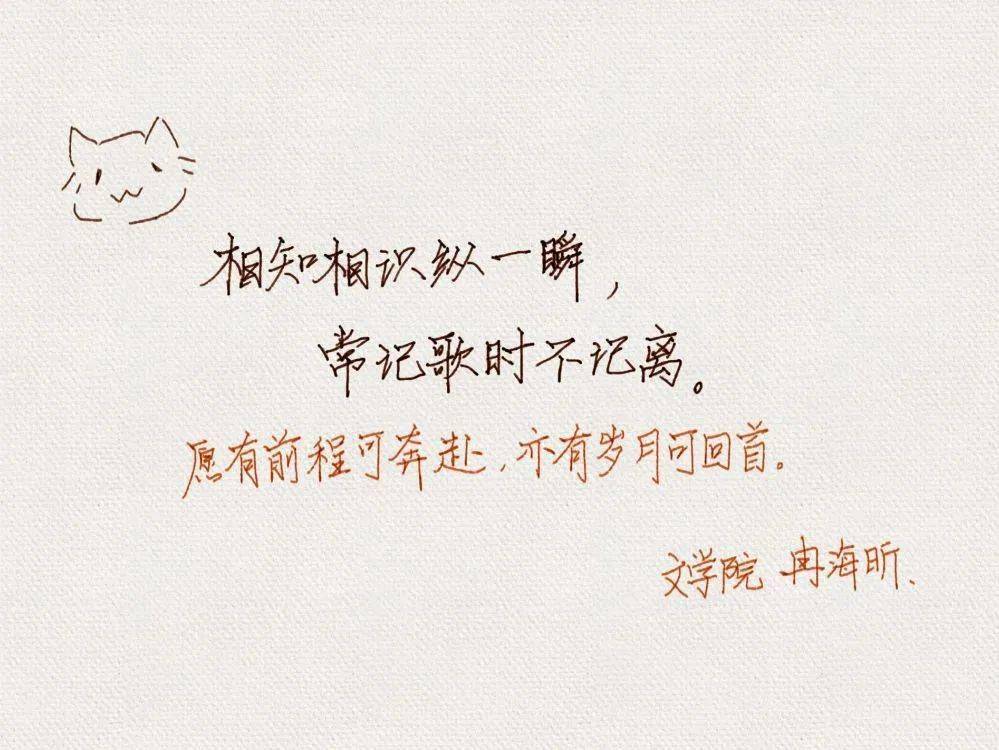 相知相识纵一瞬，
常记歌时不记离。
愿有前程可奔赴，亦有岁月可回首。
文学院 冉海昕、